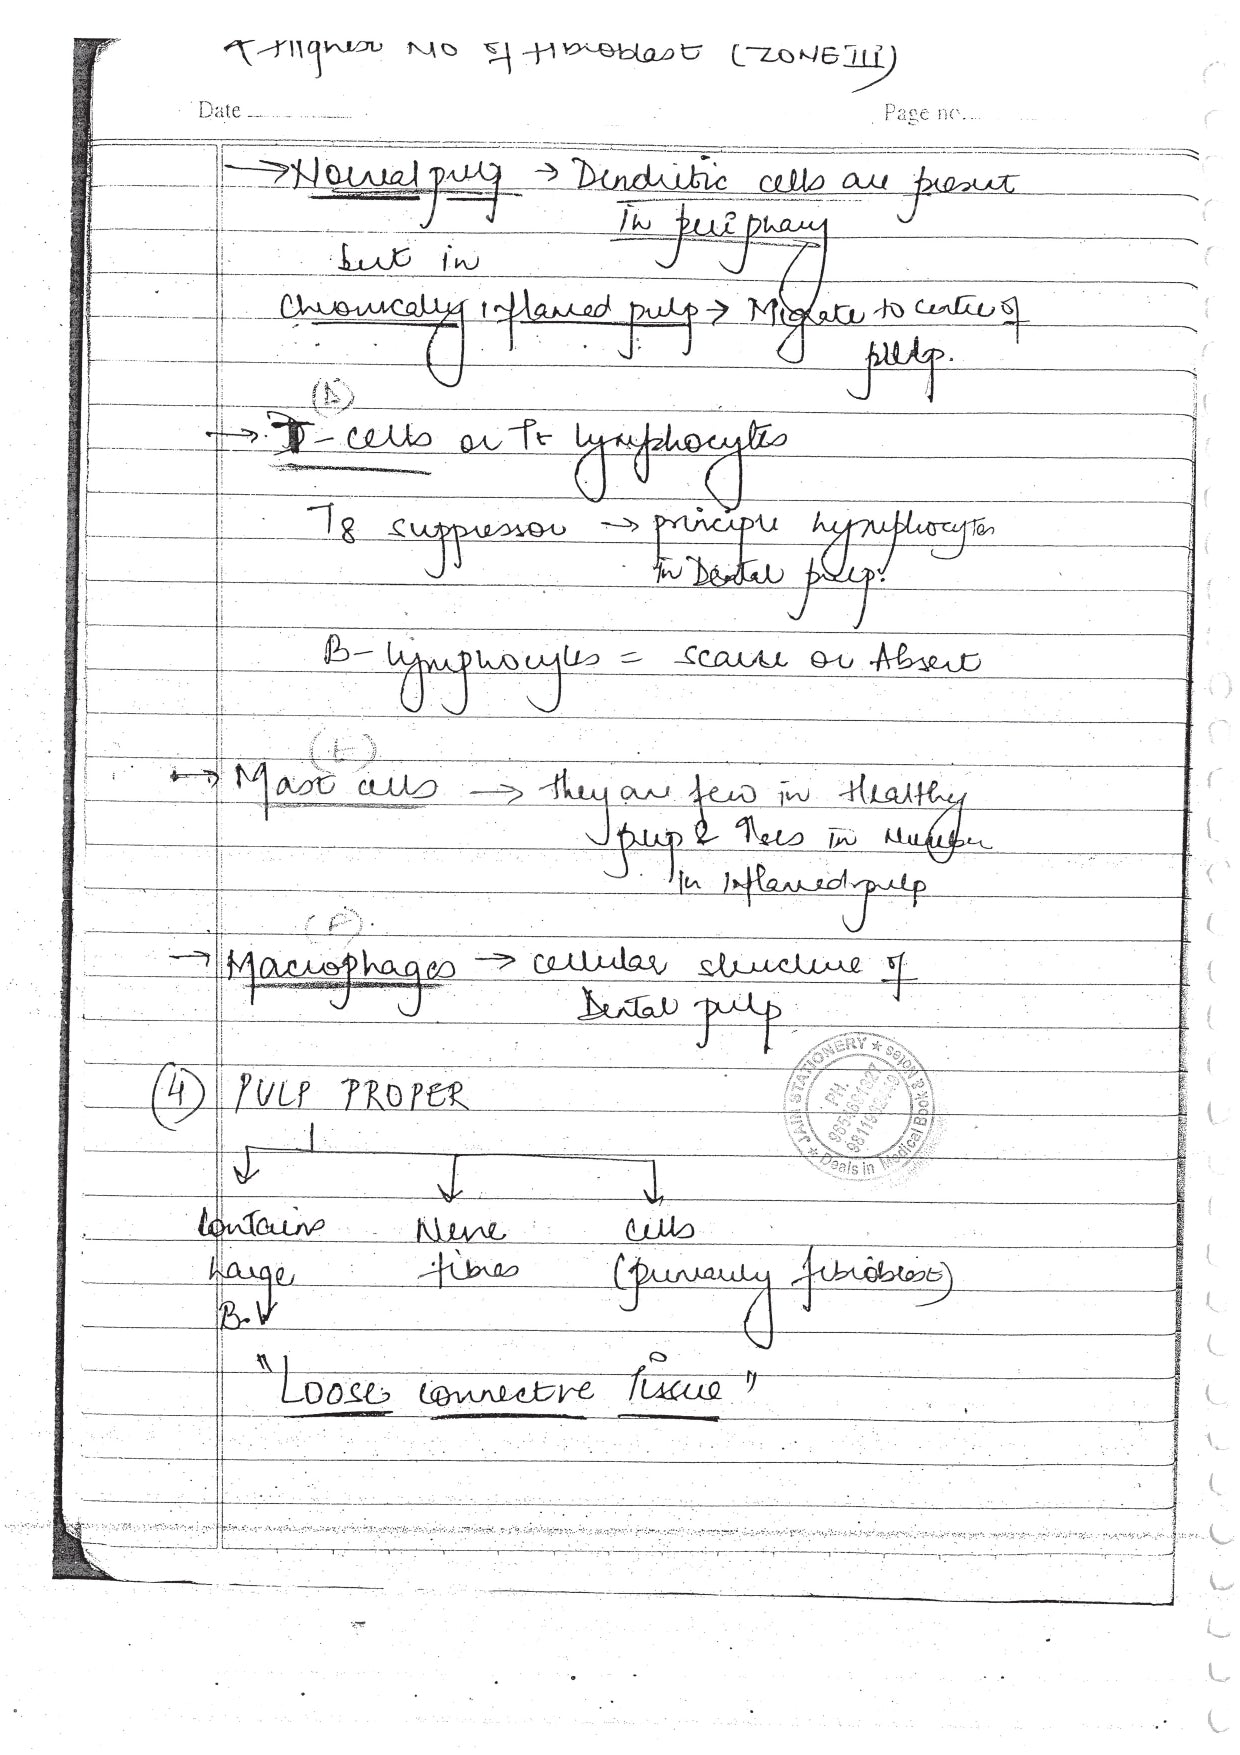 * Highest No of fibroblast (ZONE III)
Date
Page no.
→ Normal pulp → Dendritic cells are present
in periphary
but in
Chronically inflamed pulp → Migrate to centre of
pulp.
(D)
→ T-cells or T lymphocytes
T8 suppressor → principle lymphocytes
in Dental pulp.
B-lymphocytes = scarse or Absent
(E)
→ Mast cells → they are few in Healthy
pulp & ↑ses in Number
in inflamed pulp
(F)
→ Macrophages → cellular structure of
Dental pulp
JAIN STATIONERY ★ Book & Notes
PH.
★ Deals in Medical
(4) PULP PROPER
Contains Nerve cells
Large fibres (primarily fibroblast)
B.V
"Loose connective Tissue"